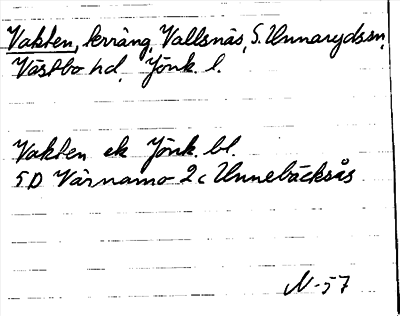 Vakten, terräng, Vallsnäs, S. Unnarydssn,
Västbo hd, Jönk. l.
Vakten ek Jönk. bl.
5D Värnamo 2c Unnebäcksås
N-57